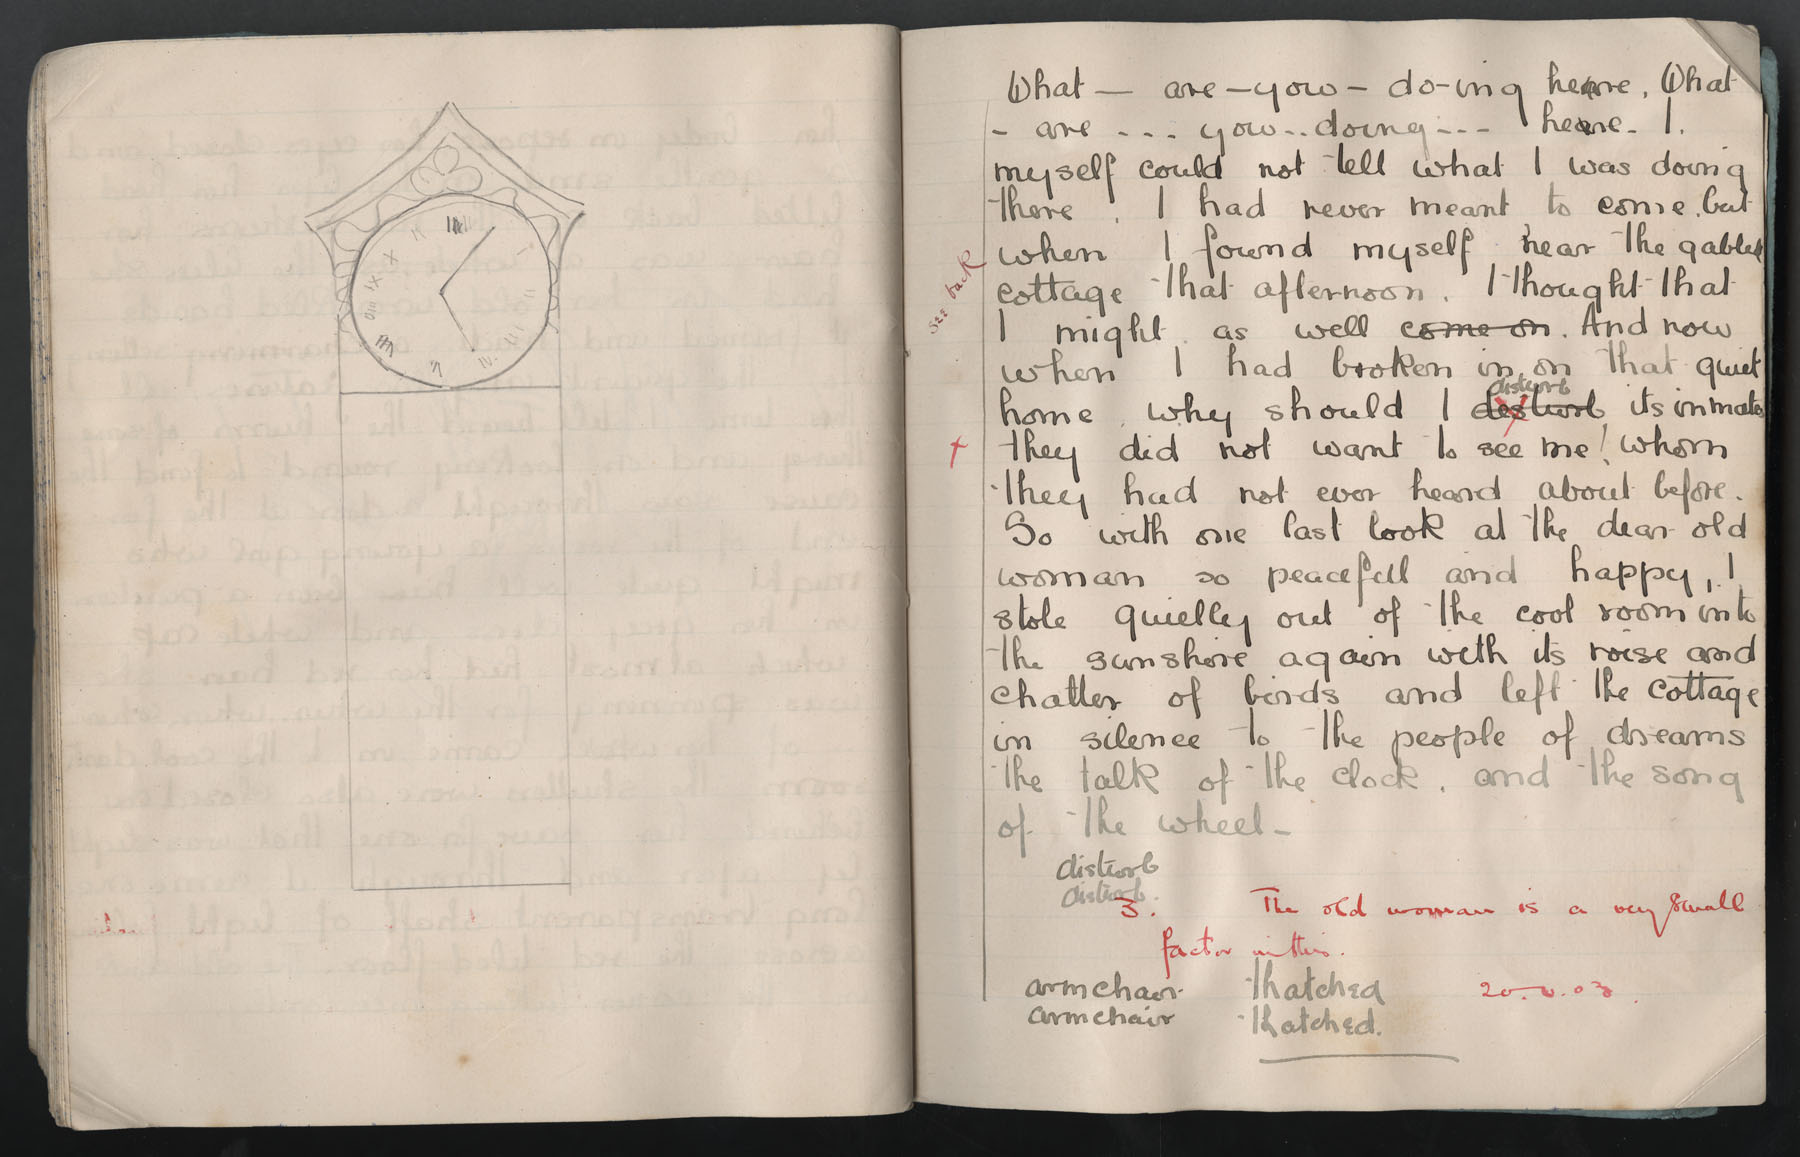 What — are – you – do-ing here, What
- are - - - you - - doing - - - here - I.
myself could not tell what I was doing
there, I had never meant to come. but
when I found myself near the gabled
see back
cottage that afternoon, I thought that
I might as well come on. And now
when I had broken in on that quiet
disturb
home, why should I desturb its inmates
they did not want to see me! whom
they had not ever heard about before.
So with one last look at the dear old
woman so peacefull and happy, I
stole quietly out of the cool room into
the sunshine again with its noise and
chatter of birds and left the cottage
in silence to the people of dreams
the talk of the clock, and the song
of the wheel -
disturb
disturb.
3. The old woman is a very small
factor in this.
armchair thatched
armchair thatched.